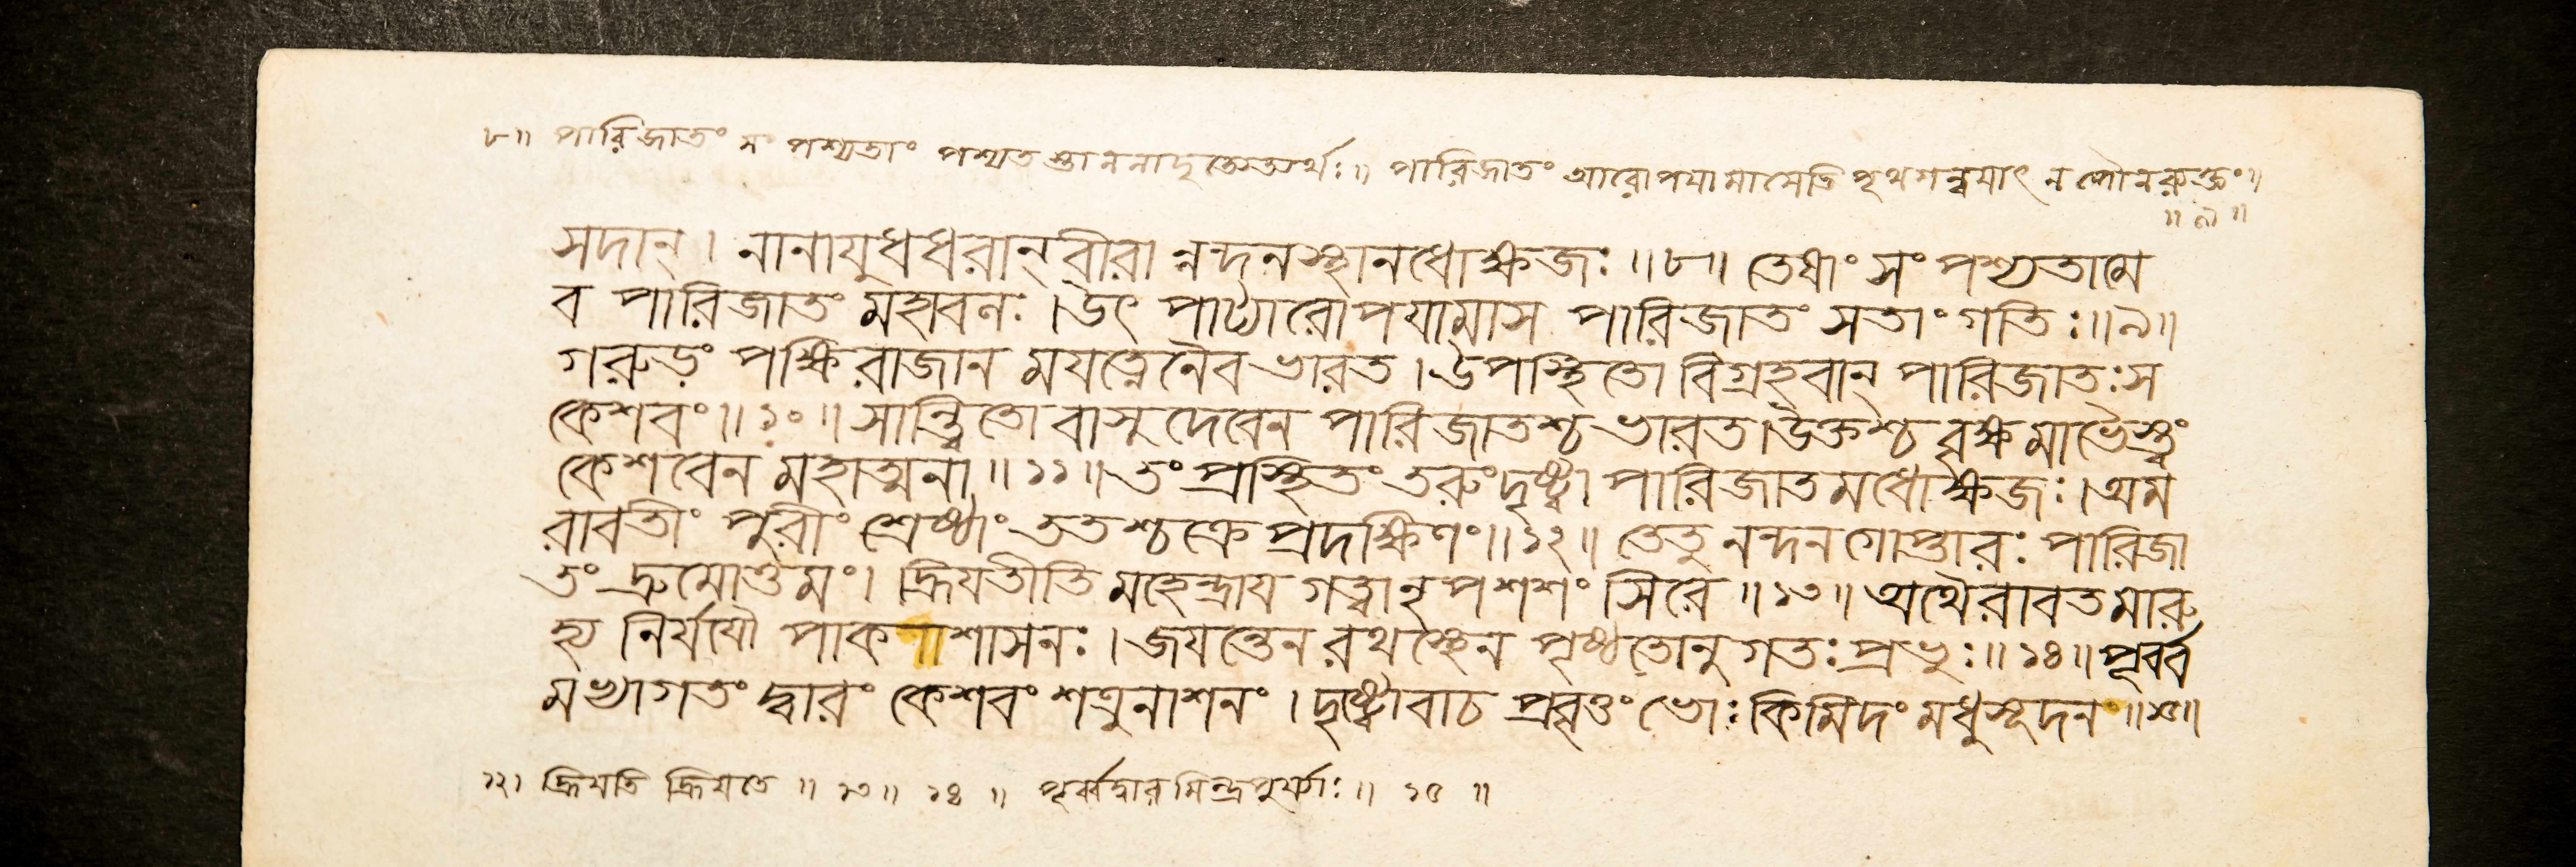 ৮॥ পারিজাতং সং পশ্যতাং পশ্যতস্তাননাদৃত্যেত্যর্থঃ॥ পারিজাতং আরোপযামাসেতি পৃথগন্বযাৎ ন পৌনরুক্তং॥
॥ ৯ ॥
সদান্। নানাযুধধরান্ বীরা ন্নন্দনস্থানধোক্ষজঃ॥৮॥ তেষাং সং পশ্যতামে
ব পারিজাতং মহাবলঃ। উৎ পাট্যারোপযামাস পারিজাতং সতাং গতিঃ॥৯॥
গরুড়ং পক্ষিরাজান মযত্নেনৈব ভারত। উপস্থিতো বিগ্রহবান্ পারিজাতঃ স
কেশবং॥১০॥ সান্ত্বিতো বাসুদেবেন পারিজাতশ্চ ভারত। উক্তশ্চ বৃক্ষ মাভৈস্ত্বং
কেশবেন মহাত্মনা॥১১॥ তং প্রস্থিতং তরুং দৃষ্ট্বা পারিজাতমধোক্ষজঃ। অম
রাবতীং পুরীং শ্রেষ্ঠাং ততশ্চক্রে প্রদক্ষিণং॥১২॥ তেতু নন্দনগোপ্তারঃ পারিজা
তং দ্রুমোত্তমং। হ্রিযতীতি মহেন্দ্রায গত্বা নৃপ শশংসিরে॥১৩॥ অথৈরাবতমারু
হ্য নির্যযৌ পাকশাসনঃ। জযন্তেন রথস্থেন পৃষ্ঠতোনুগতঃ প্রভুঃ॥১৪॥ পূর্ব্ব
মভ্যাগতং দ্বারং কেশবং শত্রুনাশনং। দৃষ্ট্বোবাচ প্রবৃত্তং ভোঃ কিমিদং মধুসূদন॥১৫॥
১২। হ্রিযতি হ্রিযতে॥ ১৩॥ ১৪॥ পূর্ব্বদ্বারমিন্দ্রপুর্য্যাঃ॥ ১৫॥